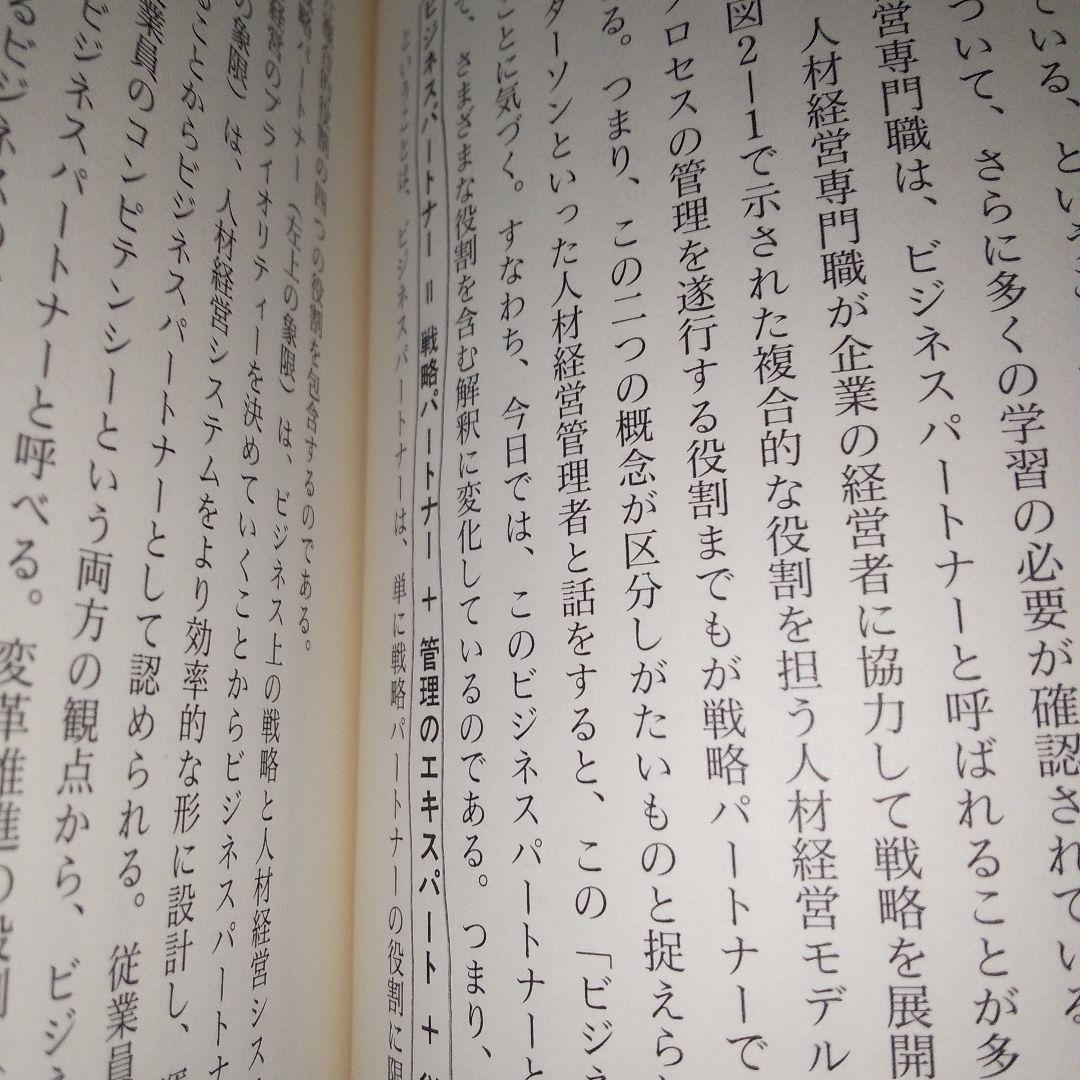 ている、という
ついて、さらに多くの学習の必要が確認されている
営専門職は、ビジネスパートナーと呼ばれることが多
人材経営専門職が企業の経営者に協力して戦略を展開
図2―1で示された複合的な役割を担う人材経営モデル
プロセスの管理を遂行する役割までもが戦略パートナーで
る。つまり、この二つの概念が区分しがたいものと捉えら
ターソンといった人材経営管理者と話をすると、この「ビジネ
ことに気づく。すなわち、今日では、このビジネスパートナーと
て、さまざまな役割を含む解釈に変化しているのである。つまり、
ビジネスパートナー = 戦略パートナー + 管理のエキスパート +
ということは、ビジネスパートナーは、単に戦略パートナーの役割に限
の四つの役割を包含するのである。
戦略パートナー(左上の象限)は、ビジネス上の戦略と人材経営シス
経営のプライオリティーを決めていくことからビジネスパートナ
の象限)は、人材経営システムをより効率的な形に設計し、
ることからビジネスパートナーとして認められる。従業員
業員のコンピテンシーという両方の観点から、ビジネ
ビジネスパートナーと呼べる。変革推進の役割
るビジネス